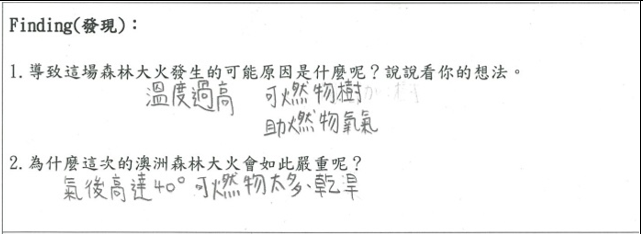 Finding(發現)：
1.導致這場森林大火發生的可能原因是什麼呢？說說看你的想法。
溫度過高 可燃物樹
助燃物氧氣
2.為什麼這次的澳洲森林大火會如此嚴重呢？
氣後高達40°可燃物太多、乾旱